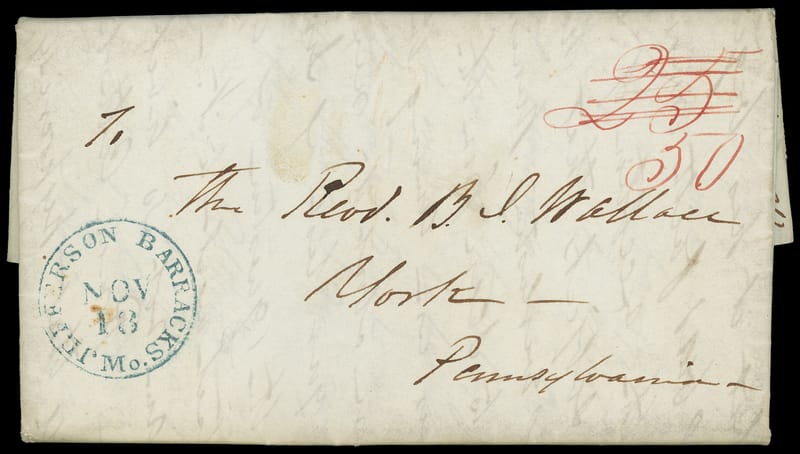 25
50
To
The Revd. B. J. Wallace
York —
Pennsylvania —
JEFFERSON BARRACKS. Mo.
NOV
18